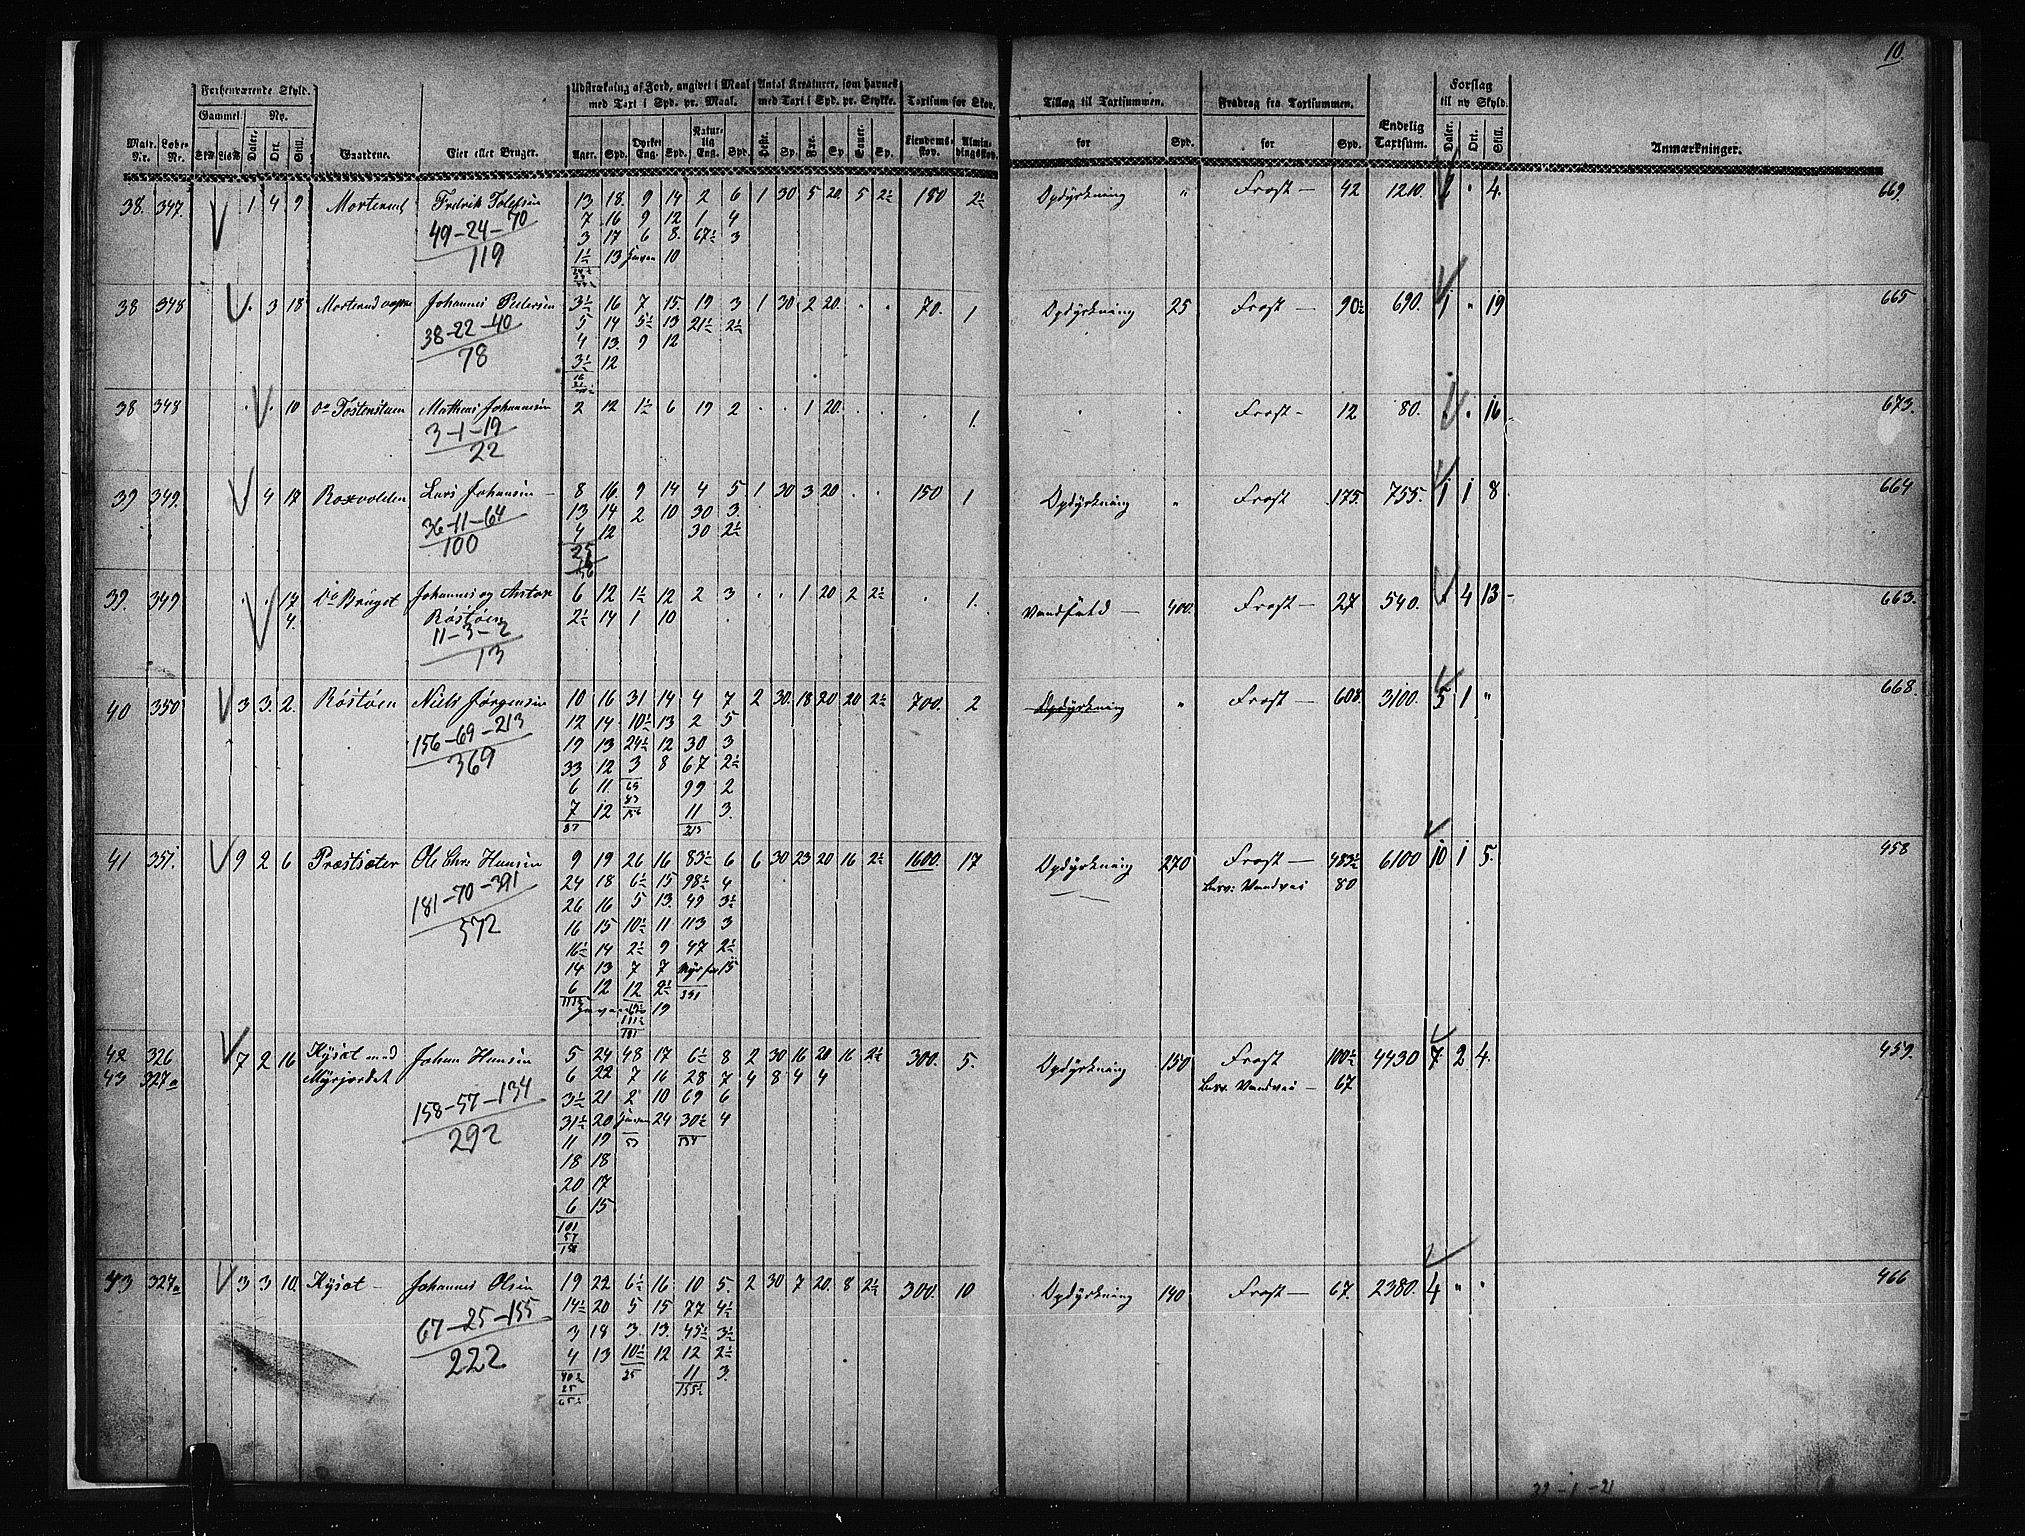 10.
Forhenværende Skyld. Udstrækning af Jord, angivet i Maal med Taxt i Spd. pr. Maal. Antal Kreaturer, som havnes med Taxt i Spd. pr. Stykke. Taxtsum for Skov. Tillæg til Taxtsummen. Fradrag fra Taxtsummen. Endelig Taxtsum. Forslag til ny Skyld. Anmærkninger.
Gammel. Ny.
Matr. Nr. Løbe-Nr. Daler. Ort. Skill. Gaardene. Eier eller Bruger. Ager. Spd. Dyrket Eng. Spd. Naturlig Eng. Spd. Heste. Sp. Køer. Sp. Sauer. Sp. Eiendomsskov. Almindingsskov. for Spd. for Spd. Daler. Ort. Skill.
38. 347. 1 4 9 Morterud Fredrik 13 18 9 14 2 6 1 30 5 20 5 2½ 150 2½ Opdyrkning " Frost — 42 1210. 2 . 4. 669.
49-24-70 7 16 9 12 1 4
3 17 6 8. 67½ 3
119 1½ 13 Haven 10
38 348 . 3 18 Johannes Pedersen 3½ 16 7 15 19 3 1 30 2 20 . . 70. 1 Opdyrkning 25 Frost — 90½ 690. 1 " 19 665
38-22-40 5 14 5½ 13 21½ 2½
78 4 13. 9 12
3½ 12
38 348 . . 10 Do Tostenstuen Mathias Johannsen 2 12 1½ 6 19 2 . . 1 20. . . . 1. Frost - 12 80. . . 16 673.
3-1-19
22
39 349. . 4 17 Roxvolden Lars Johansen 8 16. 9 14 4 5 1 30 3 20 . . 150 1 Opdyrkning " Frost 175. 755. 1 1 8 664
36-11-64 13 14 2 10 30 3.
100 4 12 30 2½
25
39. 349 . . 17 Do Bruget Johannes og Anton 6 12 1½ 12 2 3 . . 1 20 2 2½ . 1. Vandfald — 400. Frost — 27 540. . 4 13 663.
4. Røstøen 2½ 14 1 10
11-3-2
13
40 350 3 3. 2. Røstøen Niels Jørgensen 10 16 31 14 4 7 2 30 18 20 20 2½ 700. 2 Opdyrkning " Frost — 608. 3100. 5 1 " 668.
156-69-213 12 14 10½ 13 2 5
369 19 13 24½ 12 30 3
33 12 3 8 67 2½
6 11. 69 99 2
7 12 11 3.
87 156 213
41 351. 9 2 6 Præstsæter Ole Chr. Hansen 9 19 26 16 83½ 6 6 30 23 20 16 2½ 1600. 17 Opdyrkning 270 Frost — 483½ 6100 10 1 5. 458
181-70-391 24 18 6½ 15 98½ 4 Besv. Vandvei 80
572 26 16 5 13. 49 3½
16 15 10½ 11 113 3
16½ 14 2½ 9 47 2½
14 13 7 7 15
6 12 12 2½ 391
Haven 19
111½
181
42 326 7 2 16 Kysæt med Johan Hansen 5 24 48 17 6½ 8 2 30 16 20 16 2½ 300. 5. Opdyrkning 150 Frost 100½ 4430 7 2 4. 459.
43 327a Myrjordet 6 22 7 16 28 7 4 8 4 4 Besv. Vandvei — 67
158-57-134 3½ 21 2 10 69 6
292 31½ 20 Haven 24 30½ 4
11 19 57 134
18 18
20 17
6 15
101
57
158
43 327a 3 3 10. Kysæt - Johannes Olsen 19 22 6½ 16 10 5. 2 30 7 20. 8 2½ 300. 10 Opdyrkning 140 Frost — 67. 2380. 4 " " 466
67-25-155 14½ 20 5 15 77 4½
222 3 18 3. 13. 45½ 3½
4 13 10½ 12 12 2½
40½ 25 11 3.
25 155½
65½